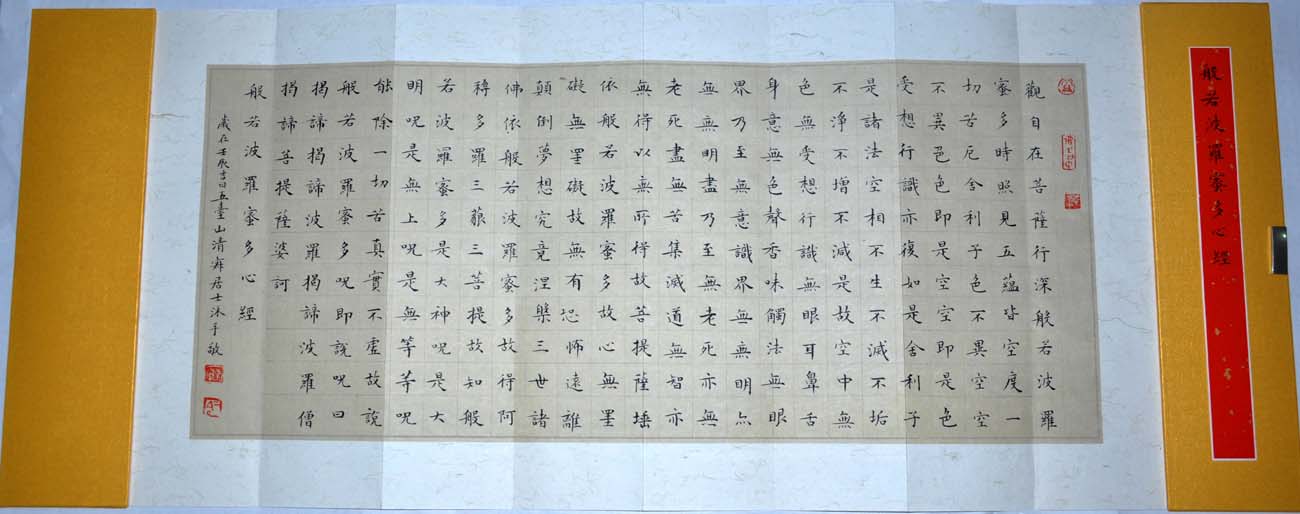 般若波羅蜜多心經
觀自在菩薩行深般若波羅
蜜多時照見五蘊皆空度一
切苦厄舍利子色不異空空
不異色色即是空空即是色
受想行識亦復如是舍利子
是諸法空相不生不滅不垢
不淨不增不減是故空中無
色無受想行識無眼耳鼻舌
身意無色聲香味觸法無眼
界乃至無意識界無無明亦
無無明盡乃至無老死亦無
老死盡無苦集滅道無智亦
無得以無所得故菩提薩埵
依般若波羅蜜多故心無罣
礙無罣礙故無有恐怖遠離
顛倒夢想究竟涅槃三世諸
佛依般若波羅蜜多故得阿
耨多羅三藐三菩提故知般
若波羅蜜多是大神呪是大
明呪是無上呪是無等等呪
能除一切苦真實不虛故說
般若波羅蜜多呪即說呪曰
揭諦揭諦波羅揭諦波羅僧
揭諦菩提薩婆訶
般若波羅蜜多心經
歲在壬辰吉日五臺山清居士沐手敬